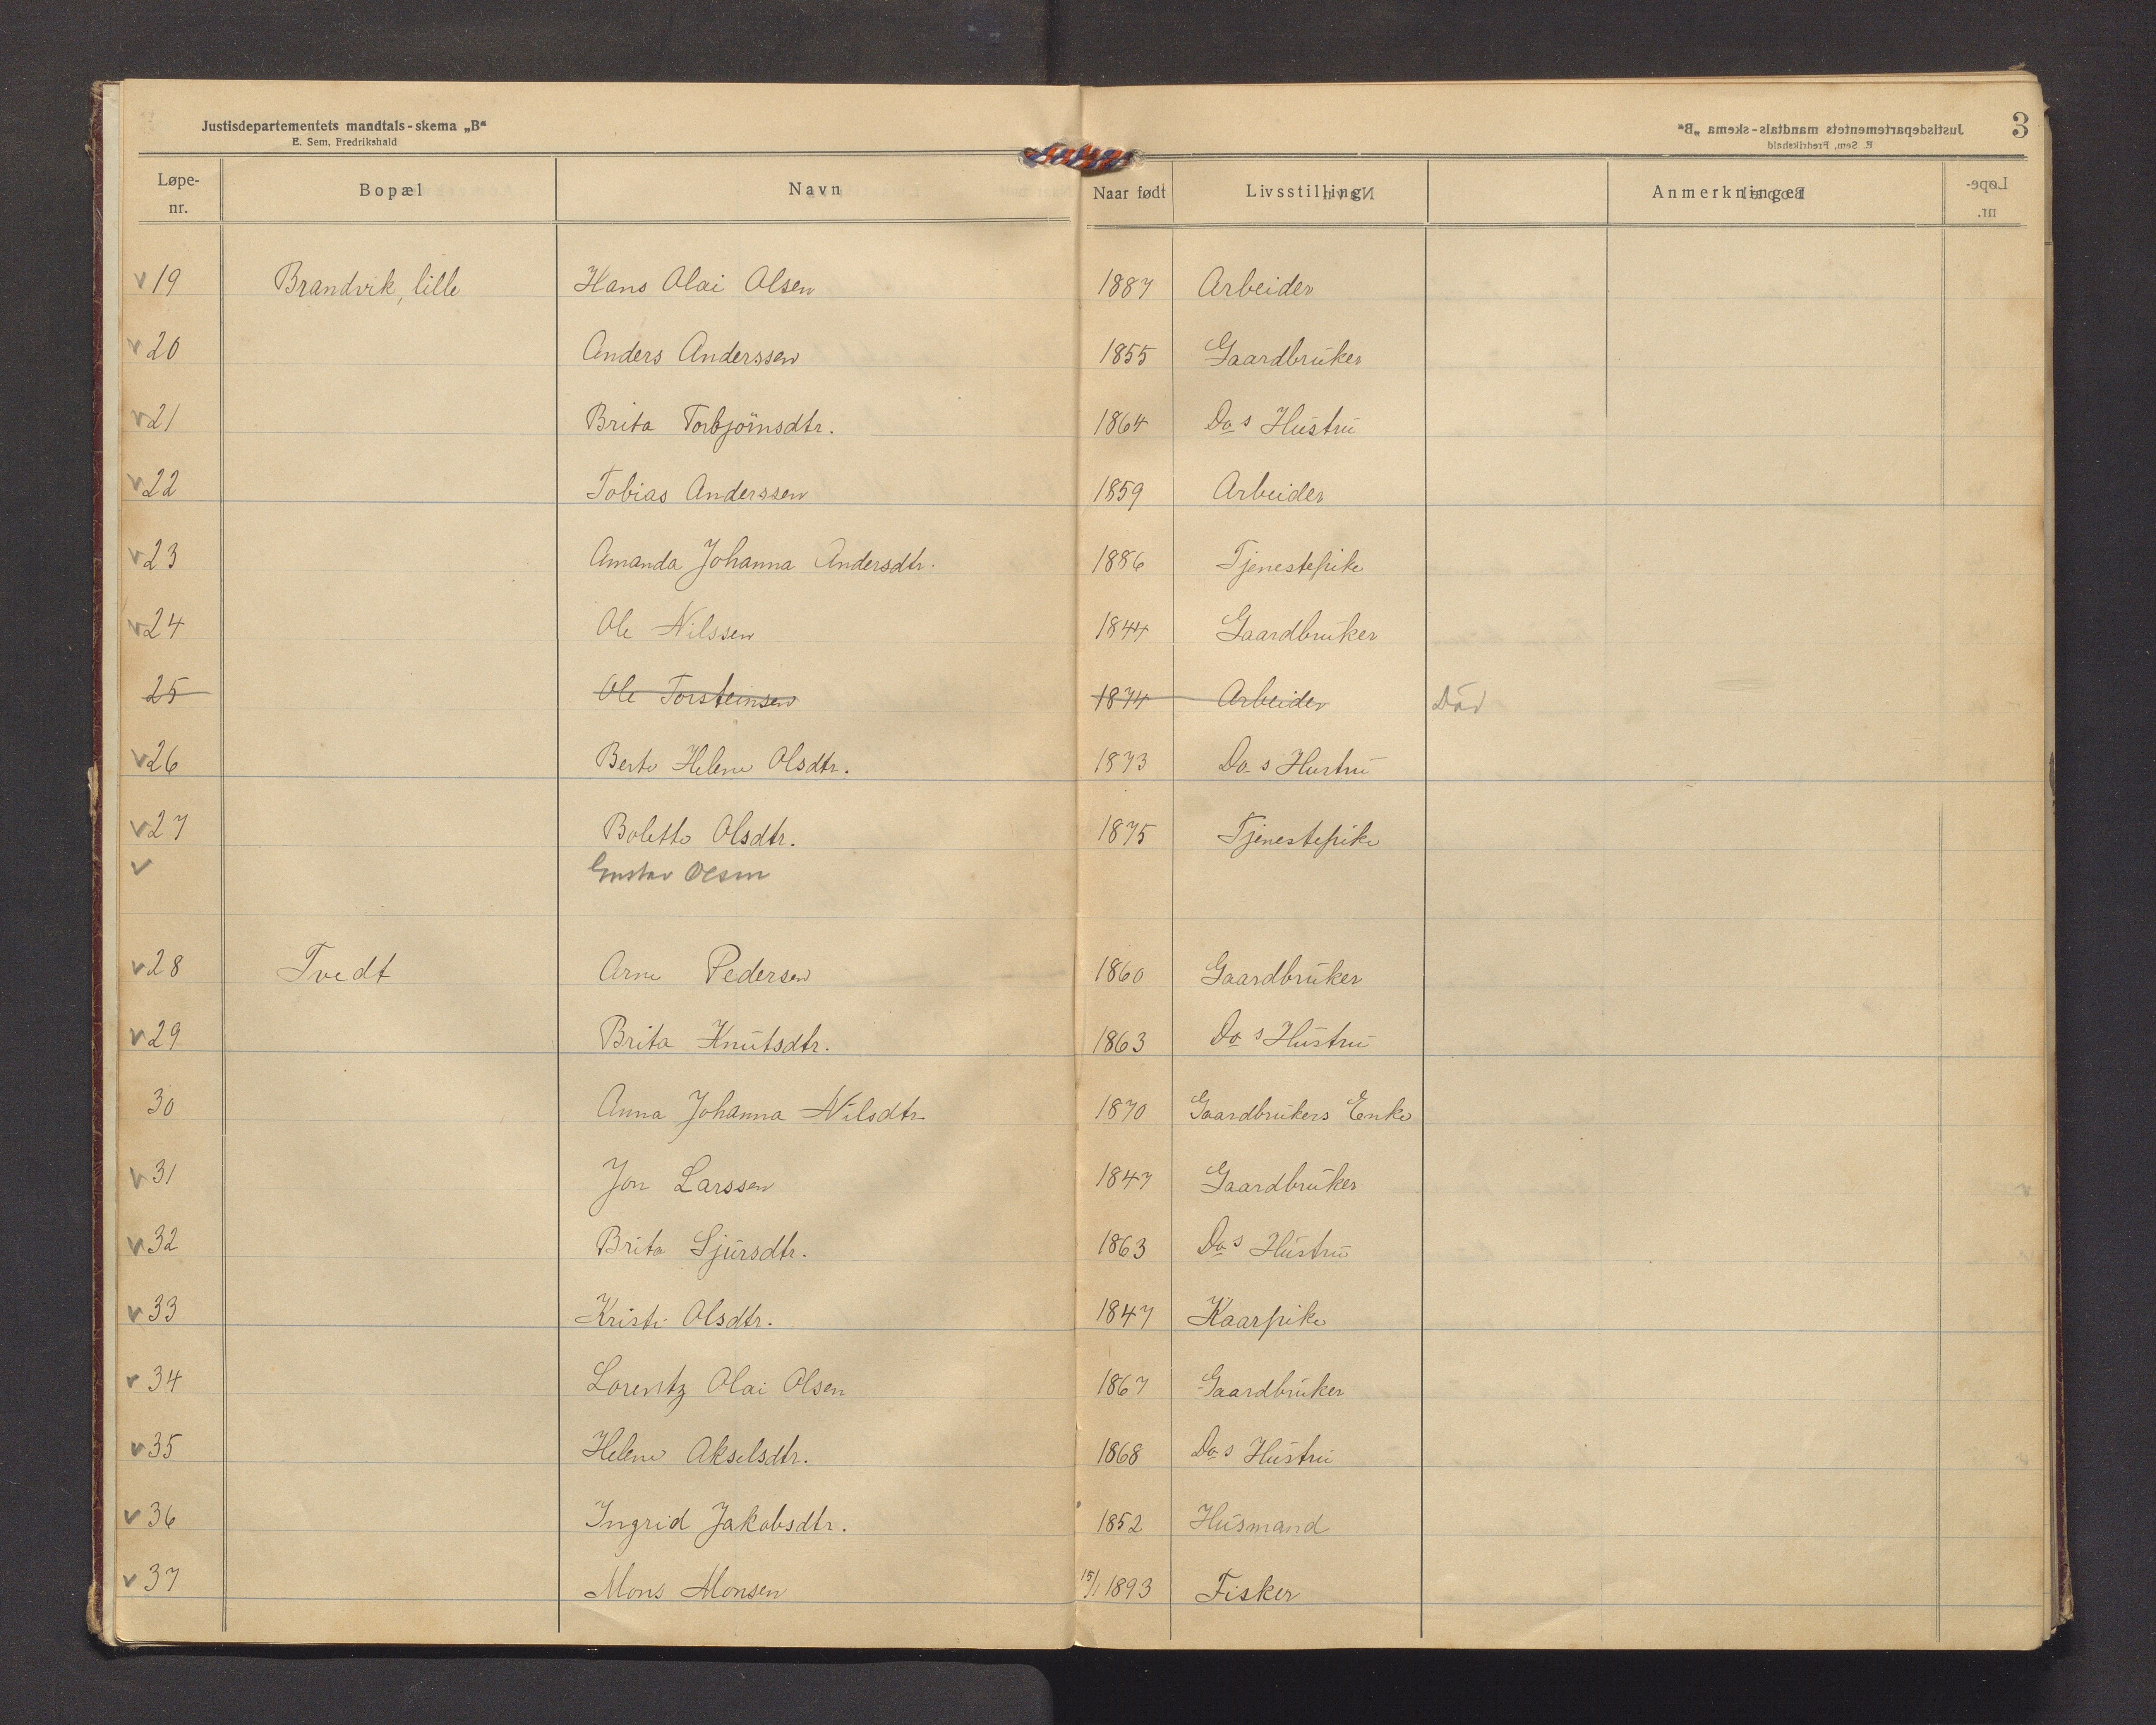 Justisdepartementets mandtals-skema „B“
E. Sem, Fredrikshald
3
Løpe-nr. Bopæl Navn Naar født Livsstilling Anmerkninger
v 19 Brandvik, lille Hans Olai Olsen 1887 Arbeider
v 20 Anders Anderssen 1855 Gaardbruker
v 21 Brita Torbjörnsdtr. 1864 Do s Hustru
v 22 Tobias Anderssen 1859 Arbeider
v 23 Amanda Johanna Andersdtr. 1886 Tjenestepike
v 24 Ole Nilssen 1844 Gaardbruker
25 Ole Torsteinsen 1874 Arbeider Död
v 26 Berte Helene Olsdtr. 1873 Do s Hustru
v 27 Bolette Olsdtr. 1875 Tjenestepike
v Gustav Olsen
v 28 Tvedt Arne Pedersen 1860 Gaardbruker
v 29 Brita Knutsdtr. 1863 Do s Hustru
30 Anna Johanna Nilsdtr. 1870 Gaardbrukers Enke
v 31 Jon Larssen 1847 Gaardbruker
v 32 Brita Sjursdtr. 1863 Do s Hustru
v 33 Kristi Olsdtr. 1847 Kaarpike
v 34 Lorentz Olai Olsen 1867 Gaardbruker
v 35 Helene Akselsdtr. 1868 Do s Hustru
v 36 Ingrid Jakobsdtr. 1852 Husmand
v 37 Mons Monsen 15/1 1893 Fisker